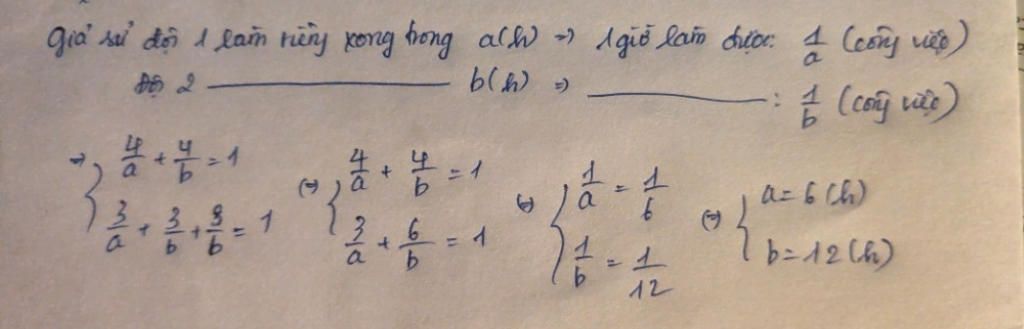 Giả sử đội 1 làm riêng xong trong a(h) => 1 giờ làm được: 1/a (công việc)
đội 2 ——— b(h) => ———: 1/b (công việc)
=> { 4/a + 4/b = 1 (=) { 4/a + 4/b = 1 (=) { 1/a = 1/6 (=) { a = 6 (h)
3/a + 3/b + 3/b = 1 3/a + 6/b = 1 1/b = 1/12 b = 12 (h)